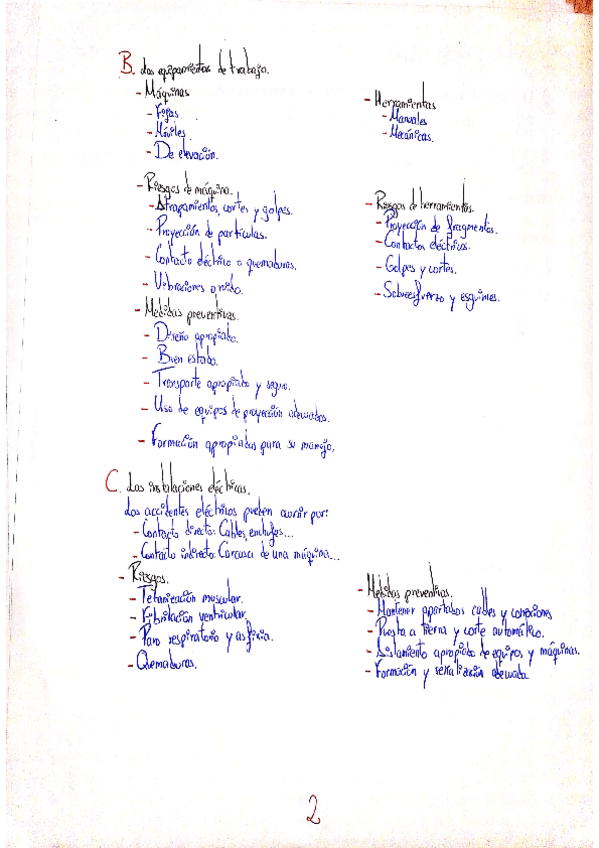 B. Los equipamientos de trabajo.
- Máquinas
- Fijas.
- Móviles.
- De elevación.
- Herramientas
- Manuales
- Mecánicas.
- Riesgos de máquina.
- Atrapamientos, cortes y golpes.
- Proyección de partículas.
- Contacto eléctrico o quemaduras.
- Vibraciones o ruido.
- Riesgos de herramientas.
- Proyección de fragmentos.
- Contactos eléctricos.
- Golpes y cortes.
- Sobreesfuerzo y esguinces.
- Medidas preventivas.
- Diseño apropiado.
- Buen estado.
- Transporte apropiado y seguro.
- Uso de equipos de proyección adecuados.
- Formación apropiadas para su manejo.
C. Las instalaciones eléctricas.
Los accidentes eléctricos pueden ocurrir por:
- Contacto directo: Cables, enchufes...
- Contacto indirecto: Carcasa de una máquina...
- Riesgos.
- Tetanización muscular.
- Fibrilación ventricular.
- Paro respiratorio y asfixia.
- Quemaduras.
- Medidas preventivas.
- Mantener apartados cables y conexiones
- Puesta a tierra y corte automático.
- Aislamiento apropiado de equipos y máquinas.
- Formación y señalización adecuada
2